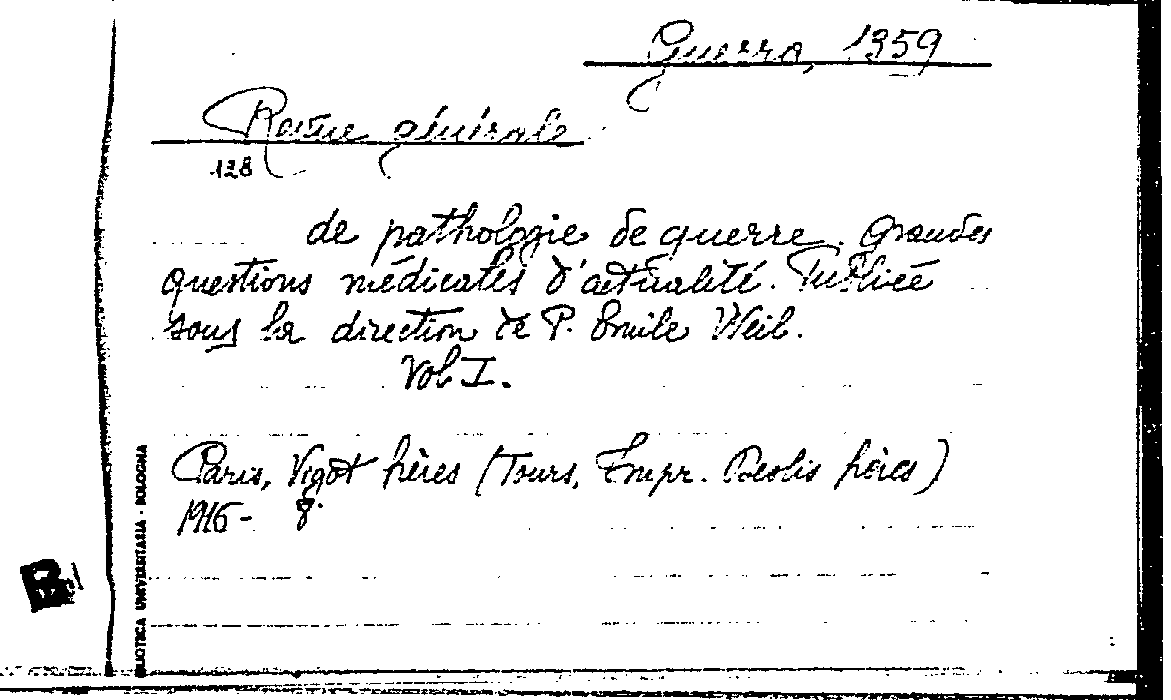 Guerra, 1359
Revue générale
128
de pathologie de guerre. Grandes
questions médicales d'actualité. Publiée
sous la direction de P. Emile Weil.
Vol I.
Paris, Vigot frères (Tours, Impr. Deslis frères)
1916- 8°
BLIOTECA UNIVERSITARIA - BOLOGNA